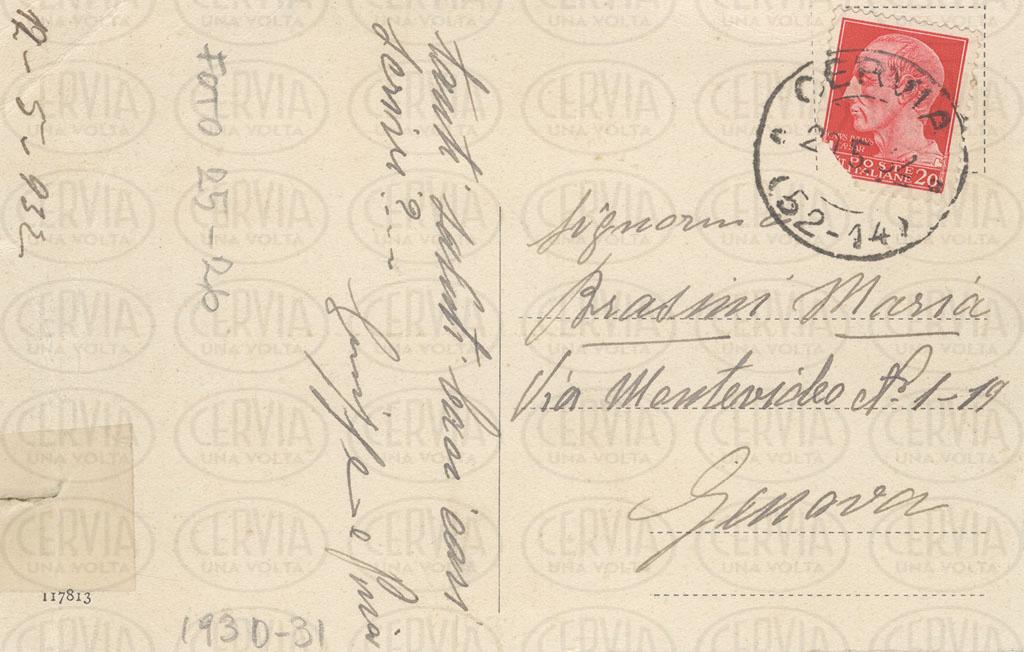 12-5-932
Foto 25-26
tanti saluti
Scrivi?...
e Pina
117813
1930-31
CERVIA
(52-14)
POSTE
ITALIANE 20
Signorina
Brasini Maria
Via Montevideo N° 1-19
Genova
CERVIA
UNA VOLTA